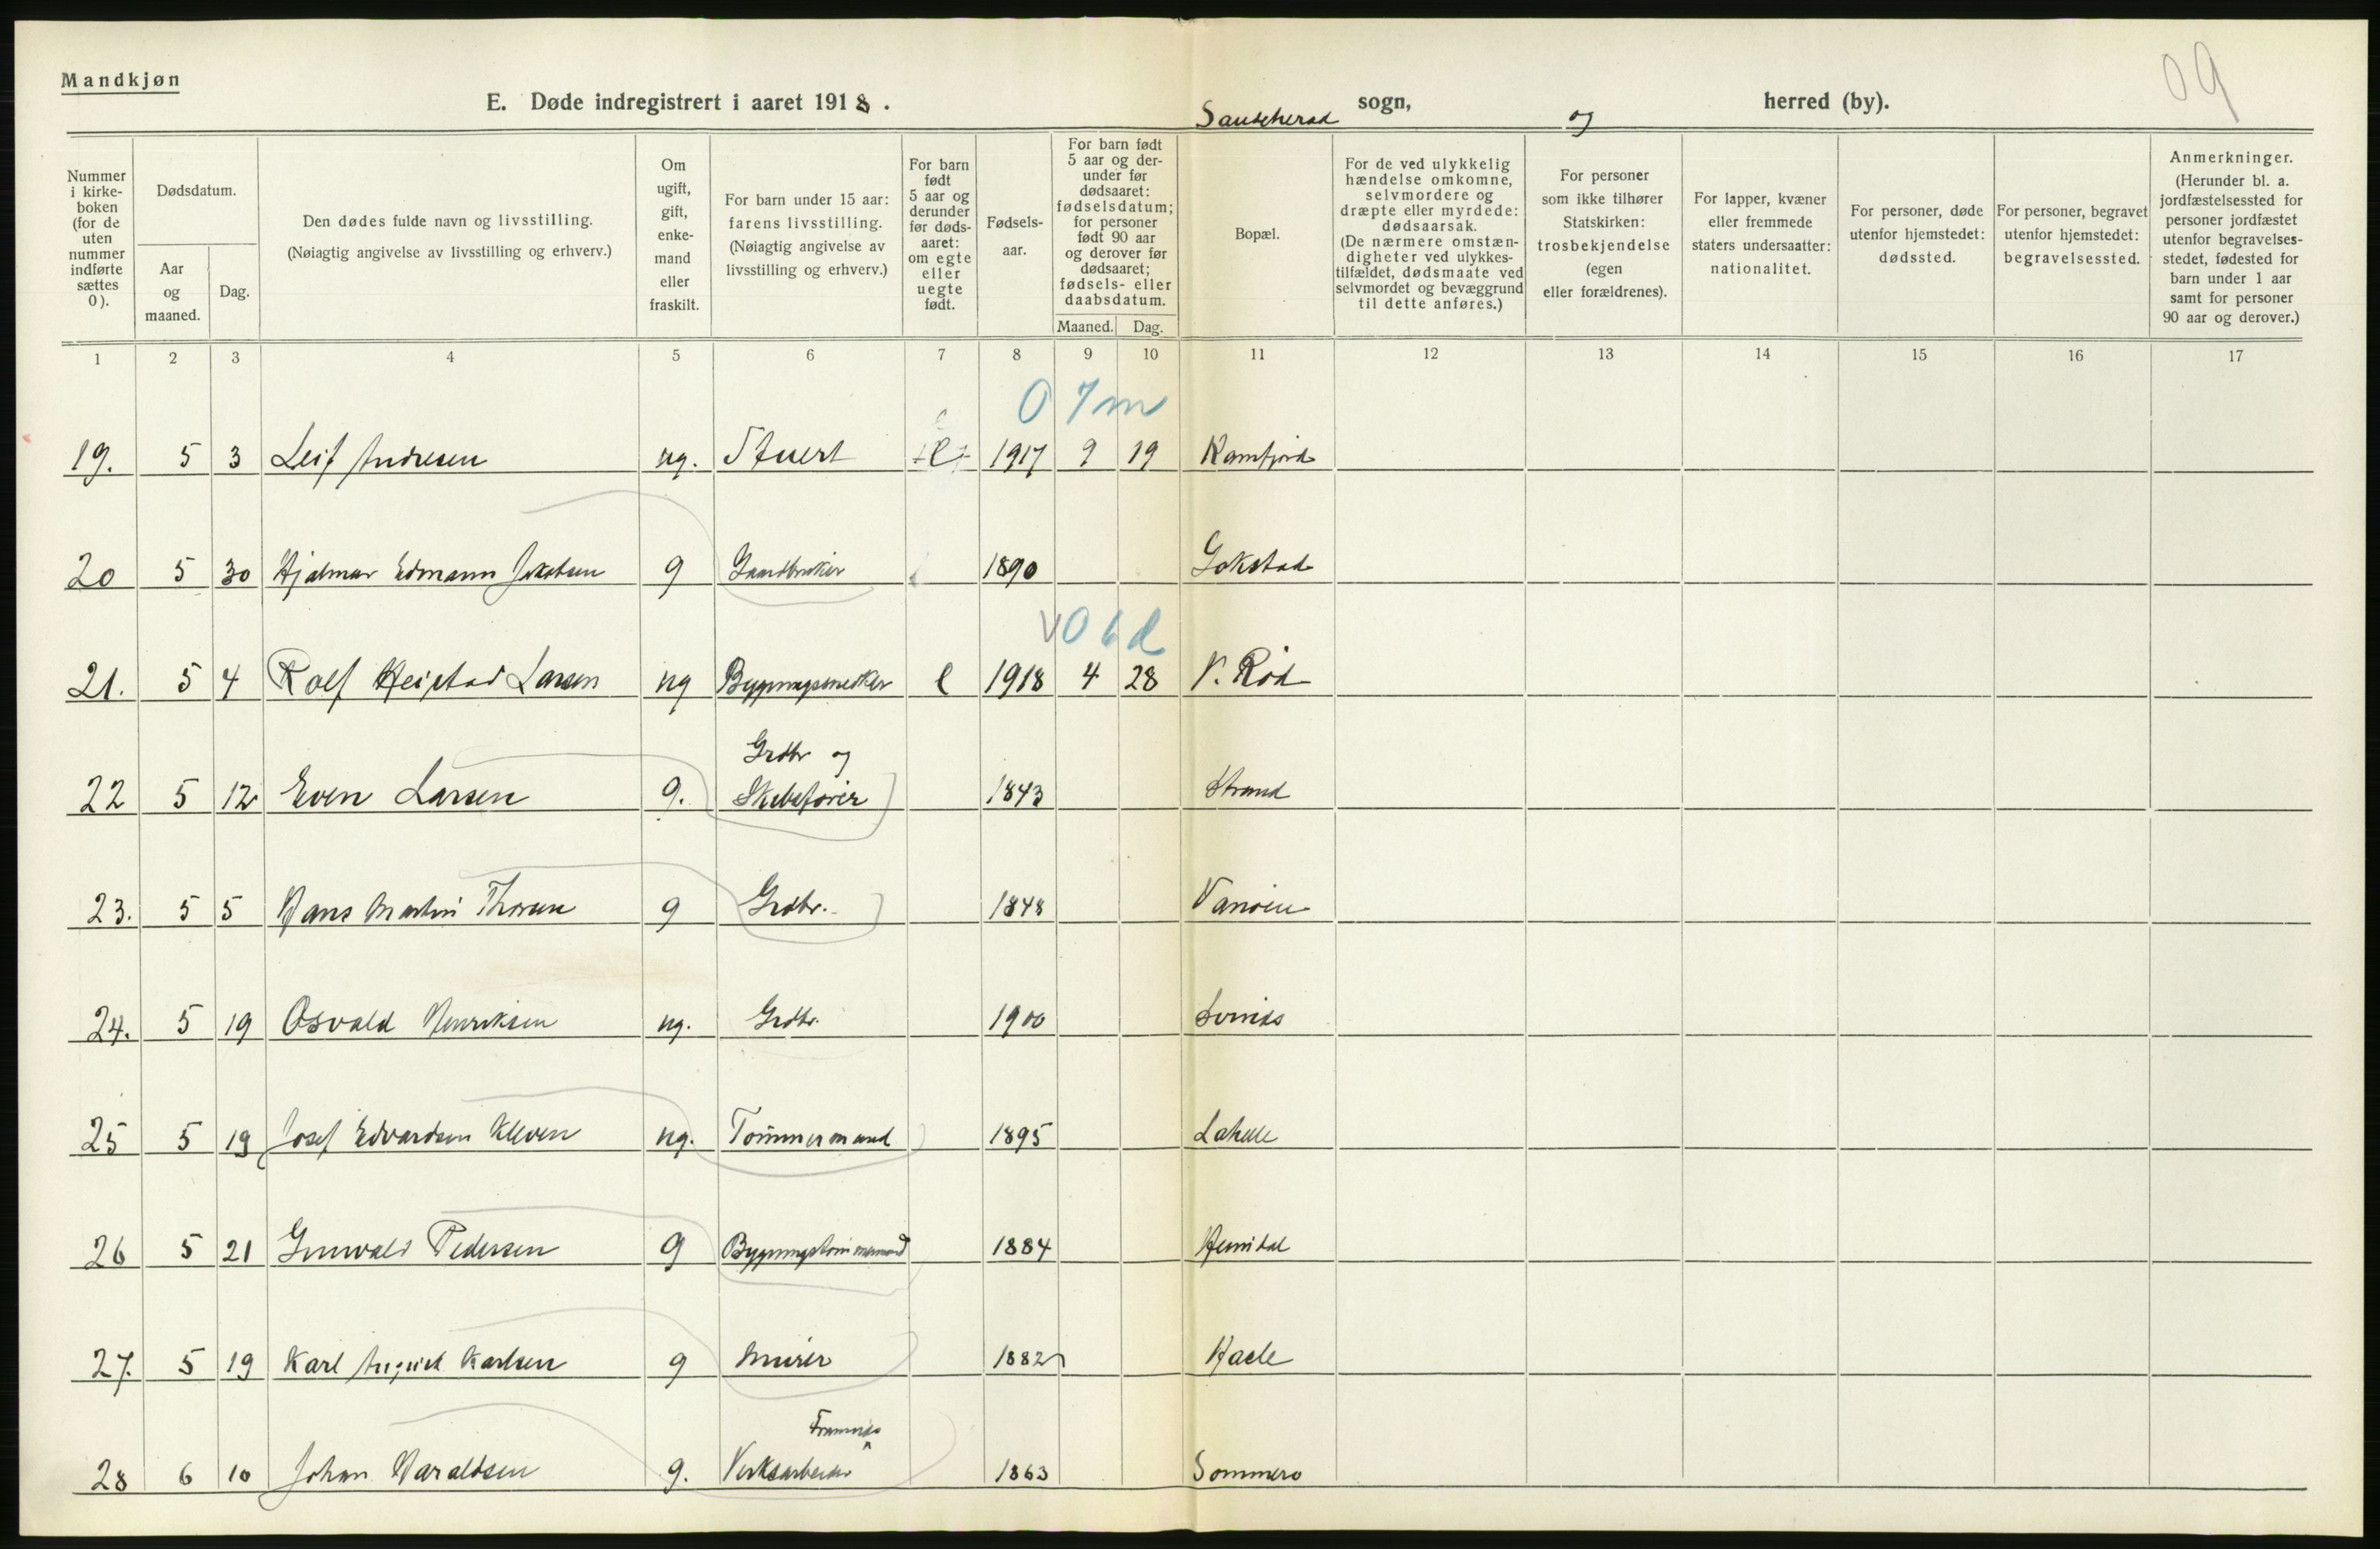 Mandkjøn
09
E. Døde indregistrert i aaret 1918.
Sandeherad sogn, og herred (by).
Nummer i kirkeboken (for de uten nummer indførte sættes 0).
Dødsdatum.
Aar og maaned.
Dag.
Den dødes fulde navn og livsstilling.
(Nøiagtig angivelse av livsstilling og erhverv.)
Om ugift, gift, enkemand eller fraskilt.
For barn under 15 aar: farens livsstilling. (Nøiagtig angivelse av livsstilling og erhverv.)
For barn født 5 aar og derunder før dødsaaret: om egte eller uegte født.
Fødselsaar.
For barn født 5 aar og derunder før dødsaaret: fødselsdatum; for personer født 90 aar og derover før dødsaaret; fødsels- eller daabsdatum.
Maaned. Dag.
Bopæl.
For de ved ulykkelig hændelse omkomne, selvmordere og dræpte eller myrdede: dødsaarsak. (De nærmere omstændigheter ved ulykkestilfældet, dødsmaate ved selvmordet og bevæggrund til dette anføres.)
For personer som ikke tilhører Statskirken: trosbekjendelse (egen eller forældrenes).
For lapper, kvæner eller fremmede staters undersaatter: nationalitet.
For personer, døde utenfor hjemstedet: dødssted.
For personer, begravet utenfor hjemstedet: begravelsessted.
Anmerkninger. (Herunder bl. a. jordfæstelsessted for personer jordfæstet utenfor begravelsesstedet, fødested for barn under 1 aar samt for personer 90 aar og derover.)
1 2 3 4 5 6 7 8 9 10 11 12 13 14 15 16 17
0 7 m
19. 5 3 Leif Andresen ug. Stuert e 1917 9 19 Kamfjord
20 5 30 Hjalmar Edmann Jakobsen g Gaardbruker 1890 Gokstad
V 0 6 d
21. 5 4 Rolf Heistad Larsen ug Bygningssnedker e 1918 4 28 V. Rød
Grdbr og
22 5 12 Even Larsen g. Skibsfører 1843 Strand
23. 5 5 Hans Martin Thorsen g Grdbr. 1848
24. 5 19 Osvald Henriksen ug. Grdbr. 1900
25 5 19 Josef Edvardsen Kleven ug. Tømmermand 1895 Lahelle
26 5 21 Gunvald Pedersen g Bygningstømmermand 1884 Hemdal
27. 5 19 Karl August Karlsen g Murer 1882
Framnæs
28 6 10 Johan Haraldsen g. Verksarbeider 1863 Sommero